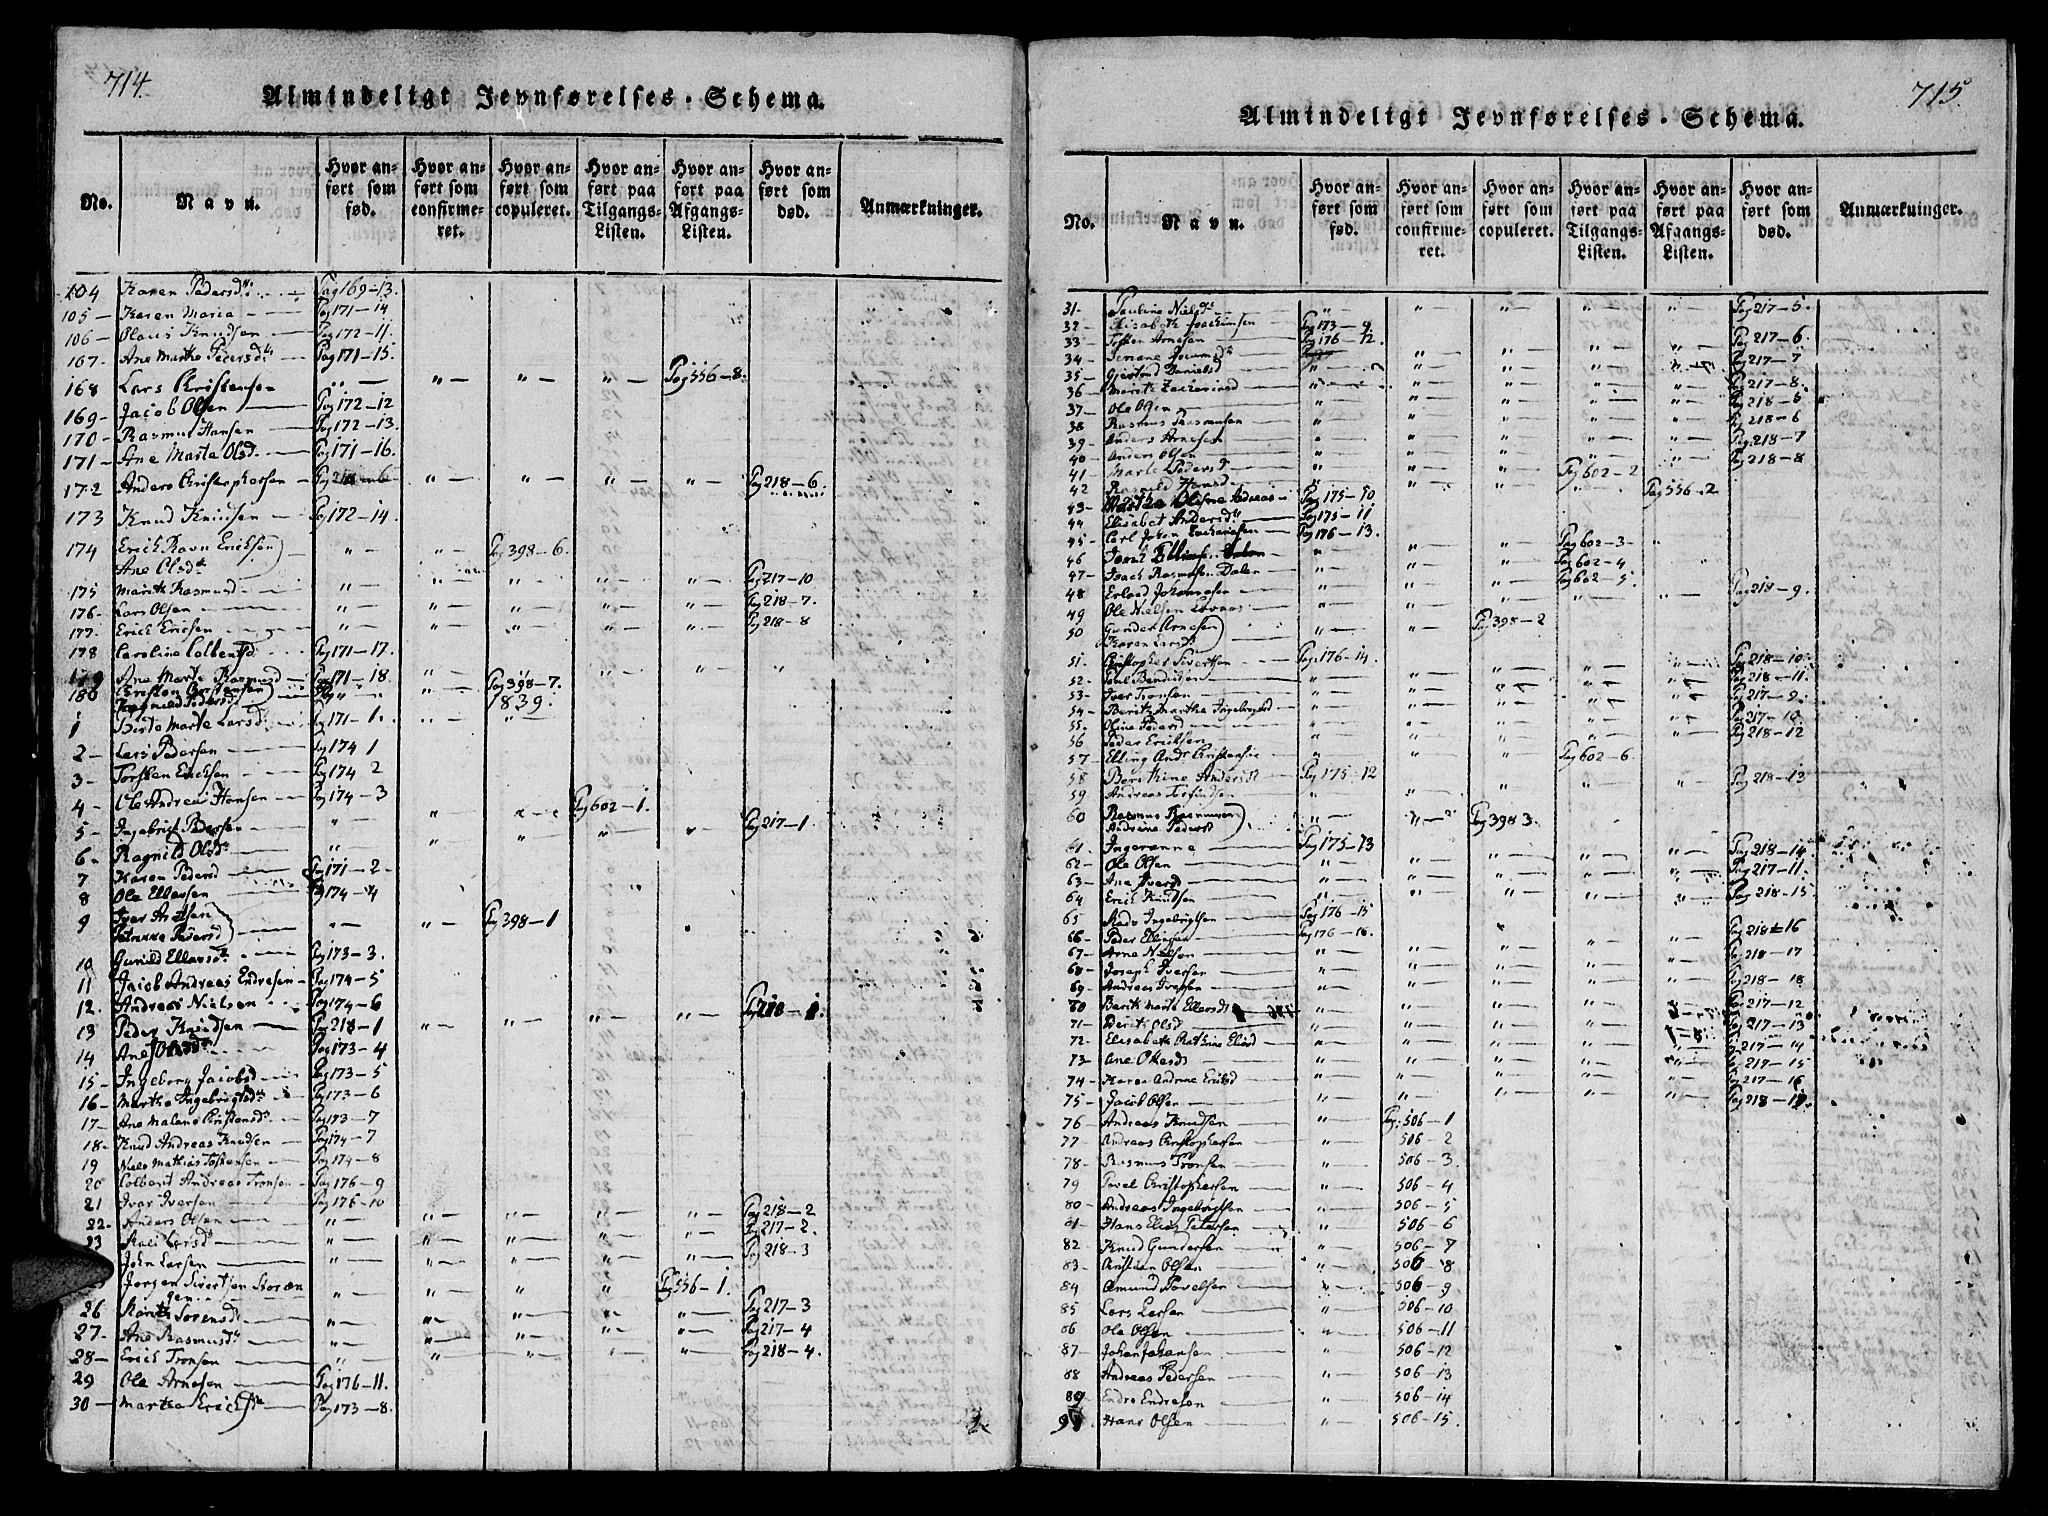 714.
Almindeligt Jevnførelses-Schema.
No. Navn. Hvor anført som fød. Hvor anført som confirmeret. Hvor anført som copuleret. Hvor anført paa Tilgangs-Listen. Hvor anført paa Afgangs-Listen. Hvor anført som død. Anmærkninger.
104 Karen Pedersd. Pag 169-13.
105 - Karen Maria Pag 171-14
106 - Olaus Knudsen Pag 172-11.
167. Ane Marthe Pedersd. Pag 171-15.
168 Lars Christensen " " " " Pag 556-8.
169- Jacob Olsen Pag 172-12
170- Rasmus Hansen Pag 172-13.
171- Ane Marte Olsd. Pag 171-16.
172 Anders Christophersen " " " Pag 218-6.
173 Knud Knudsen Pag 172-14.
174 Erich Ravn Ericksen " " Pag 398-6.
Ane Olsd.
175 Marithe Rasmusd " " " " " Pag 217-10
176- Lars Olsen " " " " " Pag 218-7.
177. Erich Ericsen " " " " " Pag 218-8
178 Caroline Colbensd Pag 171-17.
179 Ane Marte Rasmusd Pag 171-18. " " " "
180 Christen Christensen " " Pag 398-7.
Ragnild Pedersd 1839.
1 Birte Marte Larsd. Pag 171-1. " "
2- Lars Pedersen Pag 174 1
3- Torsten Ericksen Pag 174 2
4- Ole Andreas Hansen Pag 174-3
5- Ingebrigt Pedersen " " " Pag 602-1.
6- Ragnild Olsd. " " " " " Pag 217-1.
7 Karen Pedersd Pag 171-2-
8 Ole Ellersen Pag 174-4
9 Iver Andersen " " Pag 398-1
Petrikke Pedersd
10 Gunild Ellersd. Pag 173-3.
11 Jacob Andreas Endresen Pag 174-5
12. Andreas Nielsen Pag 174-6
13 Peder Knudsen Pag 218-1 " " " " Pag 218-1.
14 Ane Olsd Pag 173-4
15- Ingeborg Jacobsd Pag 173-5
16- Marthe Ingebrigtsd. Pag 173-6
17- Ane Malene Christensd. Pag 173-7
18- Knud Andreas Knudsen Pag 174-7
19 Niels Mathias Torstensen Pag 174-8
20 Colbent Andreas Tronsen Pag 176-9
21 Ivar Iversen Pag 176-10
22- Anders Olsen " " " " " Pag 218-2
23 Kari Larsd " " " " " Pag 217-2.
John Larsen " " " " " Pag 218-3
Jørgen Sivertsen Storæn " " " " Pag 556-1.
gen
26 Marithe Sorensd. " " " " " Pag 217-3
27- Ane Rasmusd. " " " " " Pag 217-4
28- Erich Tronsen " " " " " Pag 218-4.
29 Ole Arnesen Pag 176-11.
30- Marthe Erichsd Pag 173-8.
715.
Almindeligt Jevnførelses-Schema.
No. Navn. Hvor anført som fød. Hvor anført som confirmeret. Hvor anført som copuleret. Hvor anført paa Tilgangs-Listen. Hvor anført paa Afgangs-Listen. Hvor anført som død. Anmærkninger.
31- Pauline Nielsd. " " " " " Pag 217-5.
32- Elisabeth Joachimsen Pag 173-9.
33- Torsten Arnesen Pag 176-12.
34- " " " " Pag 217-6.
35- Gjertrud Danielsd " " " " " Pag 217-7
36- Marith Zachariasd " " " " " Pag 217-8.
37- Ole Olsen " " " " " Pag 218-5
38 Rasmus Rasmussen " " " " " Pag 218-6
39- Anders Arnesen " " " " " Pag 218-7
40- Anders Olsen " " " " " Pag 218-8
41 Marte Pedersd " " " Pag 602-2
42 Ragnild Hansd. " " " " Pag 556-2
43- Marthe Oline Andreas Pag 175-10
44 Elisabet Andersd. Pag 175-11
45- Carl Johan Zachariasen Pag 176-13.
46 " " " Pag 602-3-
47- Joach Rasmusen Dalen " " " Pag 602-4
48 Erland Johannesen " " " Pag 602-5.
49 Ole Nielsen " " " " " Pag 218-9.
50 Gunder Arnesen " " Pag 398-2
Karen Larsd.
51- Christopher Sivertsen Pag 176-14.
52- Poul Bendixsen " " " " " Pag 218-10
53- Iver Tronsen " " " " " Pag 218-11.
54- Berith Marthe Ingebrigtsd " " " " " Pag 217-9.
55- Oline Pedersd " " " " " Pag 217-10.
56 Peder Ericksen " " " " " Pag 218-12
57- Elling Andr Christensen " " " Pag 602-6.
58 Berethine Andersd Pag 175-12
59 Andreas " " " " " Pag 218-13
60 Rasmus Rasmusen " " Pag 398 3.
Andrine Pedersd
61 Ingeranne Pag 175-13
62- Ole Olsen " " " " " Pag 218-14
63- Ane Iversd " " " " " Pag 217-11.
64 Erick Knudsen " " " " " Pag 218-15
65 Mads Ingebrigtsen Pag 176-15
66- Peder Ellingsen Pag 176-16.
67- Arne Nielsen " " " " " Pag 218-16
68- Joseph Iversen " " " " " Pag 218-17
69- Andreas Iversen " " " " " Pag 218-18
60 Berith Marte Ellersd " " " " Pag 217-12
71- Berit Olsd " " " " Pag 217-13
72- Elisabeth Cathrine Eliasd " " " " " Pag 217-14
73- Ane Olsd " " " " " Pag 217-15
74- Karen Andrine Ericksd " " " " " Pag 217-16
75- Jacob Olsen " " " " " Pag 218-19.
76 Andreas Knudsen " Pag. 506-1
77 Andreas Christophersen " 506-2
78- Rasmus Tronsen " 506-3.
79 Povel Christophersen " 506-4
80- Andreas Ingebrigtsen " 506-5
81- Hans Elias Petersen " 506-6
82 Knud Gundersen " 506-7
83- Christian Olsen " 506 8
84 Amund Povelsen " 506-9
85 Lars Larsen " 506-10
86 Ole Olsen " 506-11
87- Johan Johansen " 506-12
88 Andreas Pedersen " 506-13
89 Endre Endresen " 506-14
90 Hans Olsen " 506-15.